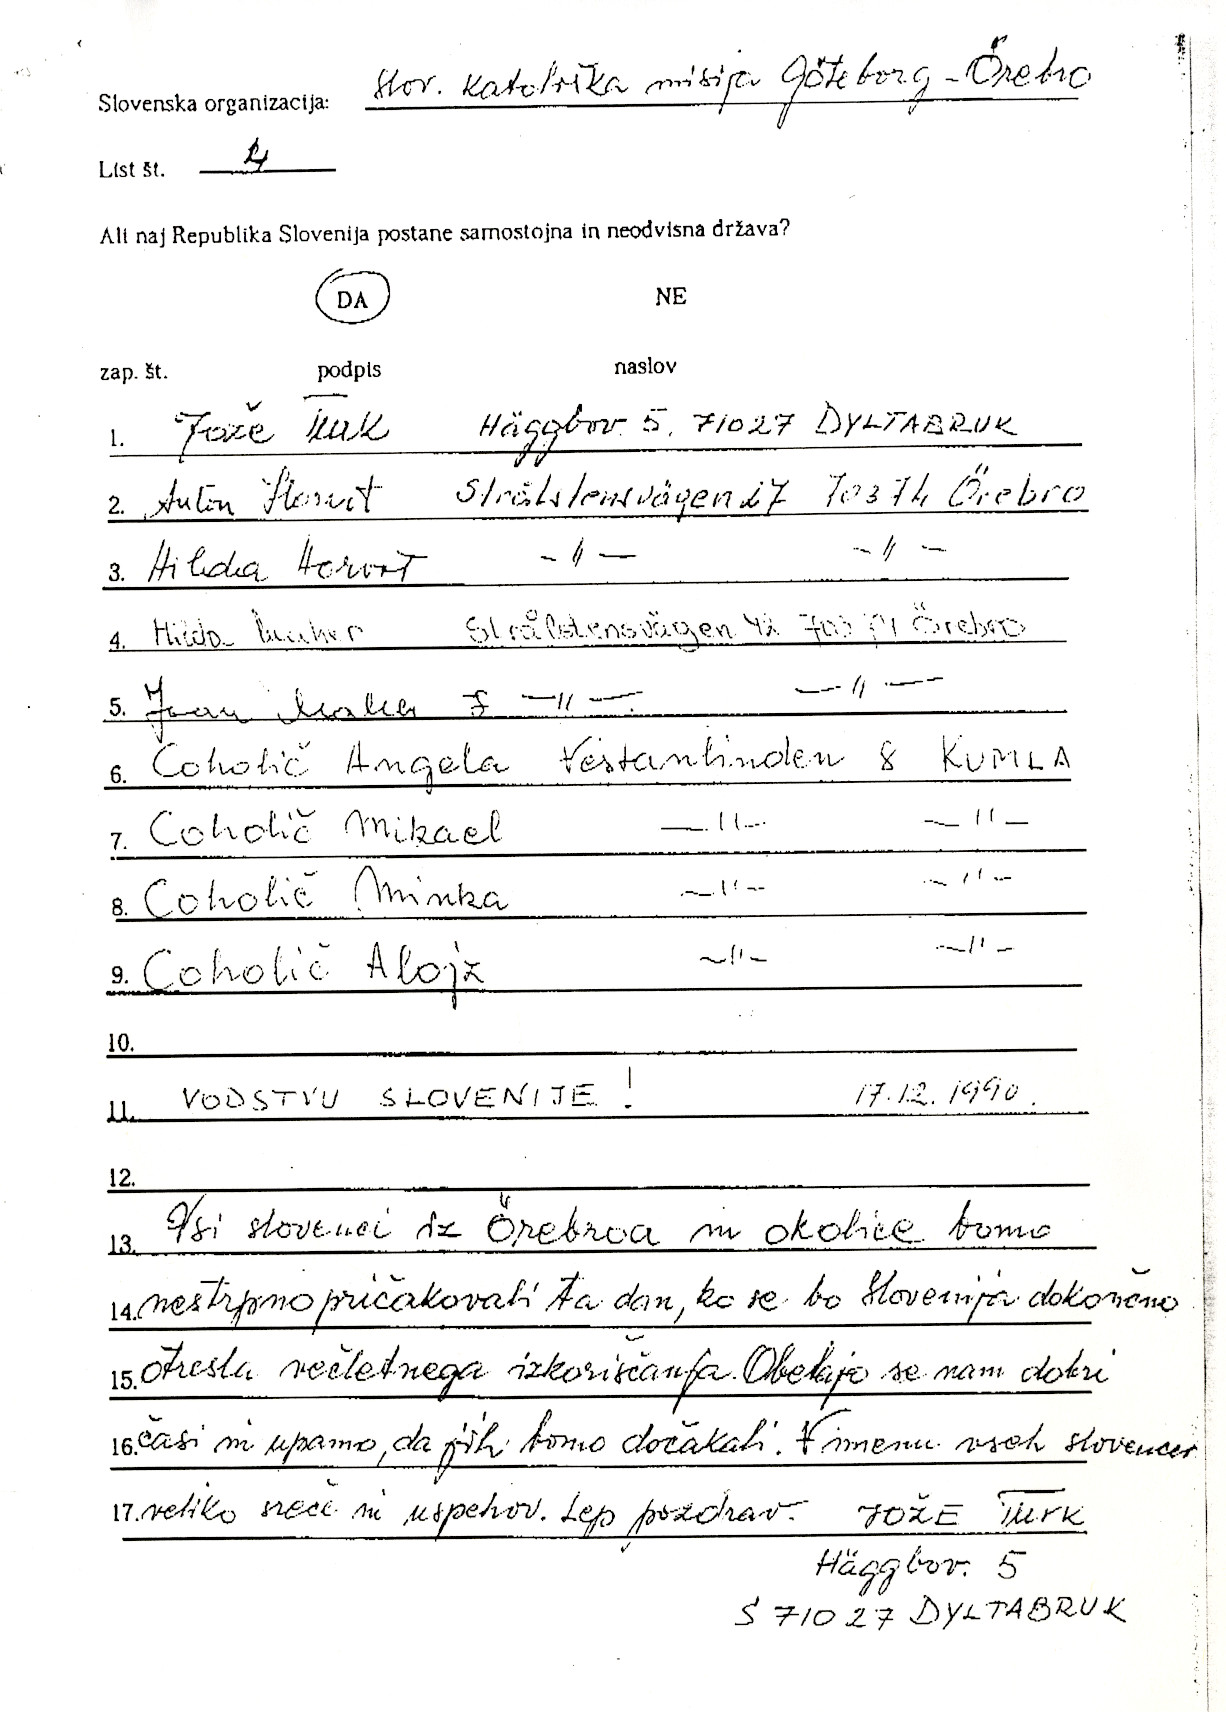 Slovenska organizacija: Slov. katoliška misija Göteborg - Örebro
List št. 4
Ali naj Republika Slovenija postane samostojna in neodvisna država?
DA NE
zap. št. podpis naslov
1. Jože Turk Häggbov. 5. 71027 DYLTABRUK
2. Anton Horvat Strålstensvägen 27 70374 Örebro
3. Hilda Horvat - 〃 - - 〃 -
4. Hilda Strålstensvägen 42 703 71 Örebro
5. Ivan - 〃 - - 〃 -
6. Coholič Angela Västanlinden 8 KUMLA
7. Coholič Mikael - 〃 - - 〃 -
8. Coholič Minka - 〃 - - 〃 -
9. Coholič Alojz - 〃 - - 〃 -
10.
11. VODSTVU SLOVENIJE! 17.12.1990.
12.
13. Vsi slovenci iz Örebroa in okolice bomo
14. nestrpno pričakovali ta dan, ko se bo Slovenija dokončno
15. otresla večletnega izkoriščanja. Obetajo se nam dobri
16. časi in upamo, da jih bomo dočakali. V imenu vseh slovencev
17. veliko sreče in uspehov. Lep pozdrav. JOŽE Turk
Häggbov. 5
S 71027 DYLTABRUK